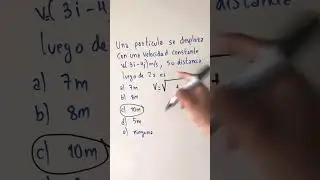 V=(3i-4j
c) 10m
Una partícula se desplaza
con una velocidad constante
v(3i-4j)m/s, su distancia
luego de 2s es
a) 7m
b) 8m
c) 10m
d) 5m
e) ninguno
V=√